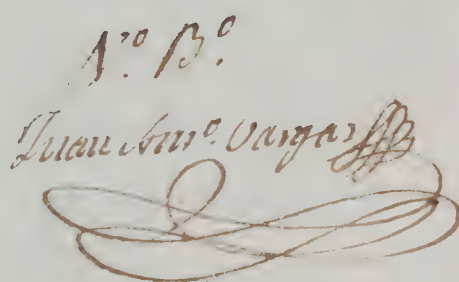 V.º B.º
Juan Anto. Vargas